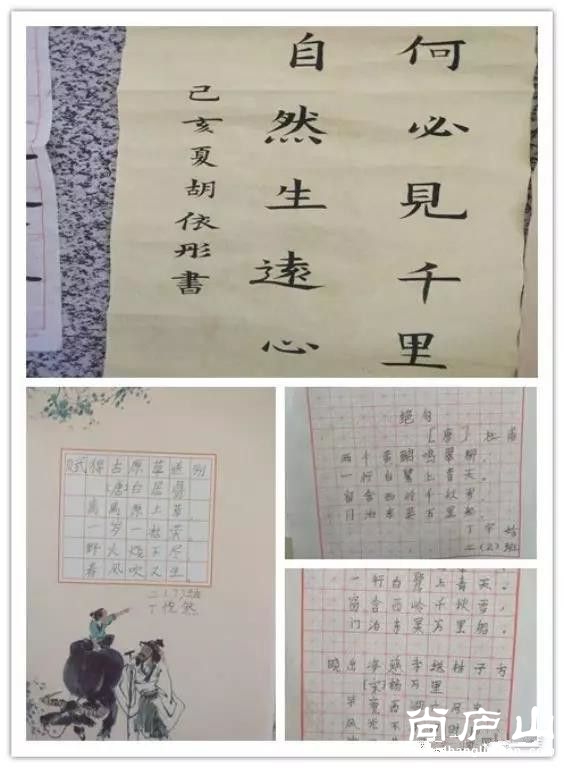 何必見千里
自然生遠心
己亥夏胡依彤書
赋得古原草送别
(唐)白居易
离离原上草,
一岁一枯荣。
野火烧不尽,
春风吹又生。
丁
绝句
[唐] 杜甫
两个黄鹂鸣翠柳,
一行白鹭上青天。
窗含西岭千秋雪,
门泊东吴万里船。
丁宇
二(2)班
一行白鹭上青天。
窗含西岭千秋雪,
门泊东吴万里船。
晓出净慈寺送林子方
(宋)杨万里
毕竟西湖
风光不
尚庐山